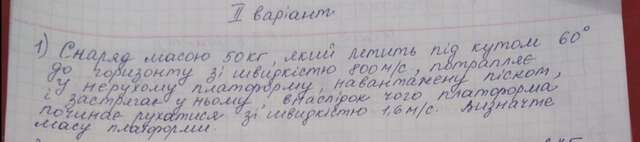 II варіант
1) Снаряд масою 50 кг, який летить під кутом 60°
до горизонту зі швидкістю 800 м/с, потрапляє
у нерухому платформу, навантажену піском,
і застрягає у ньому, внаслідок чого платформа
починає рухатися зі швидкістю 1,6 м/с. Визначте
масу платформи.